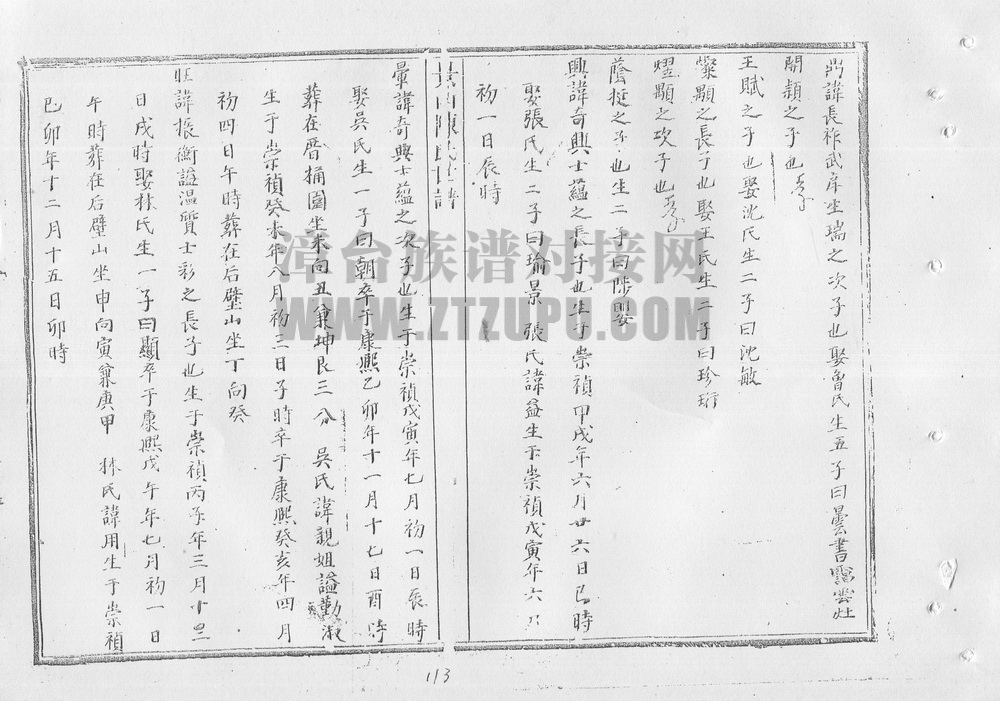 諱長祚武岸坐瑞之次子也娶魯氏生五子曰曇書
開頴之子也
王賦之子也娶沈氏生二子曰沈敏
粲顯之長子也娶王氏生二子曰珍珩
熠顯之次子也
蔭挺之子也生二子曰陟
興諱奇興士蘊之長子也生于崇禎甲戌年六月廿六日巳時
娶張氏生二子曰瑜景 張氏諱益生于崇禎戊寅年六月
初一日辰時
陳氏世譜
暈諱奇興士蘊之次子也生于崇禎戊寅年七月初一日辰時
娶吳氏生一子曰朝卒于康熙乙卯年十一月十七日酉時
葬在厝桶園坐未向丑兼坤艮三分 吳氏諱親姐謚勤淑
生于崇禎癸未年八月初三日子時卒于康熙癸亥年四月
初四日午時葬在后壁山坐丁向癸
旺諱振衡謚温質士彩之長子也生于崇禎丙子年三月十四
日戌時娶林氏生一子曰顯卒于康熙戊午年七月初一日
午時葬在后壁山坐申向寅兼庚甲 林氏諱用生于崇禎
己卯年十二月十五日卯時
113
漳台族谱对接网
WWW.ZTZUPU.COM